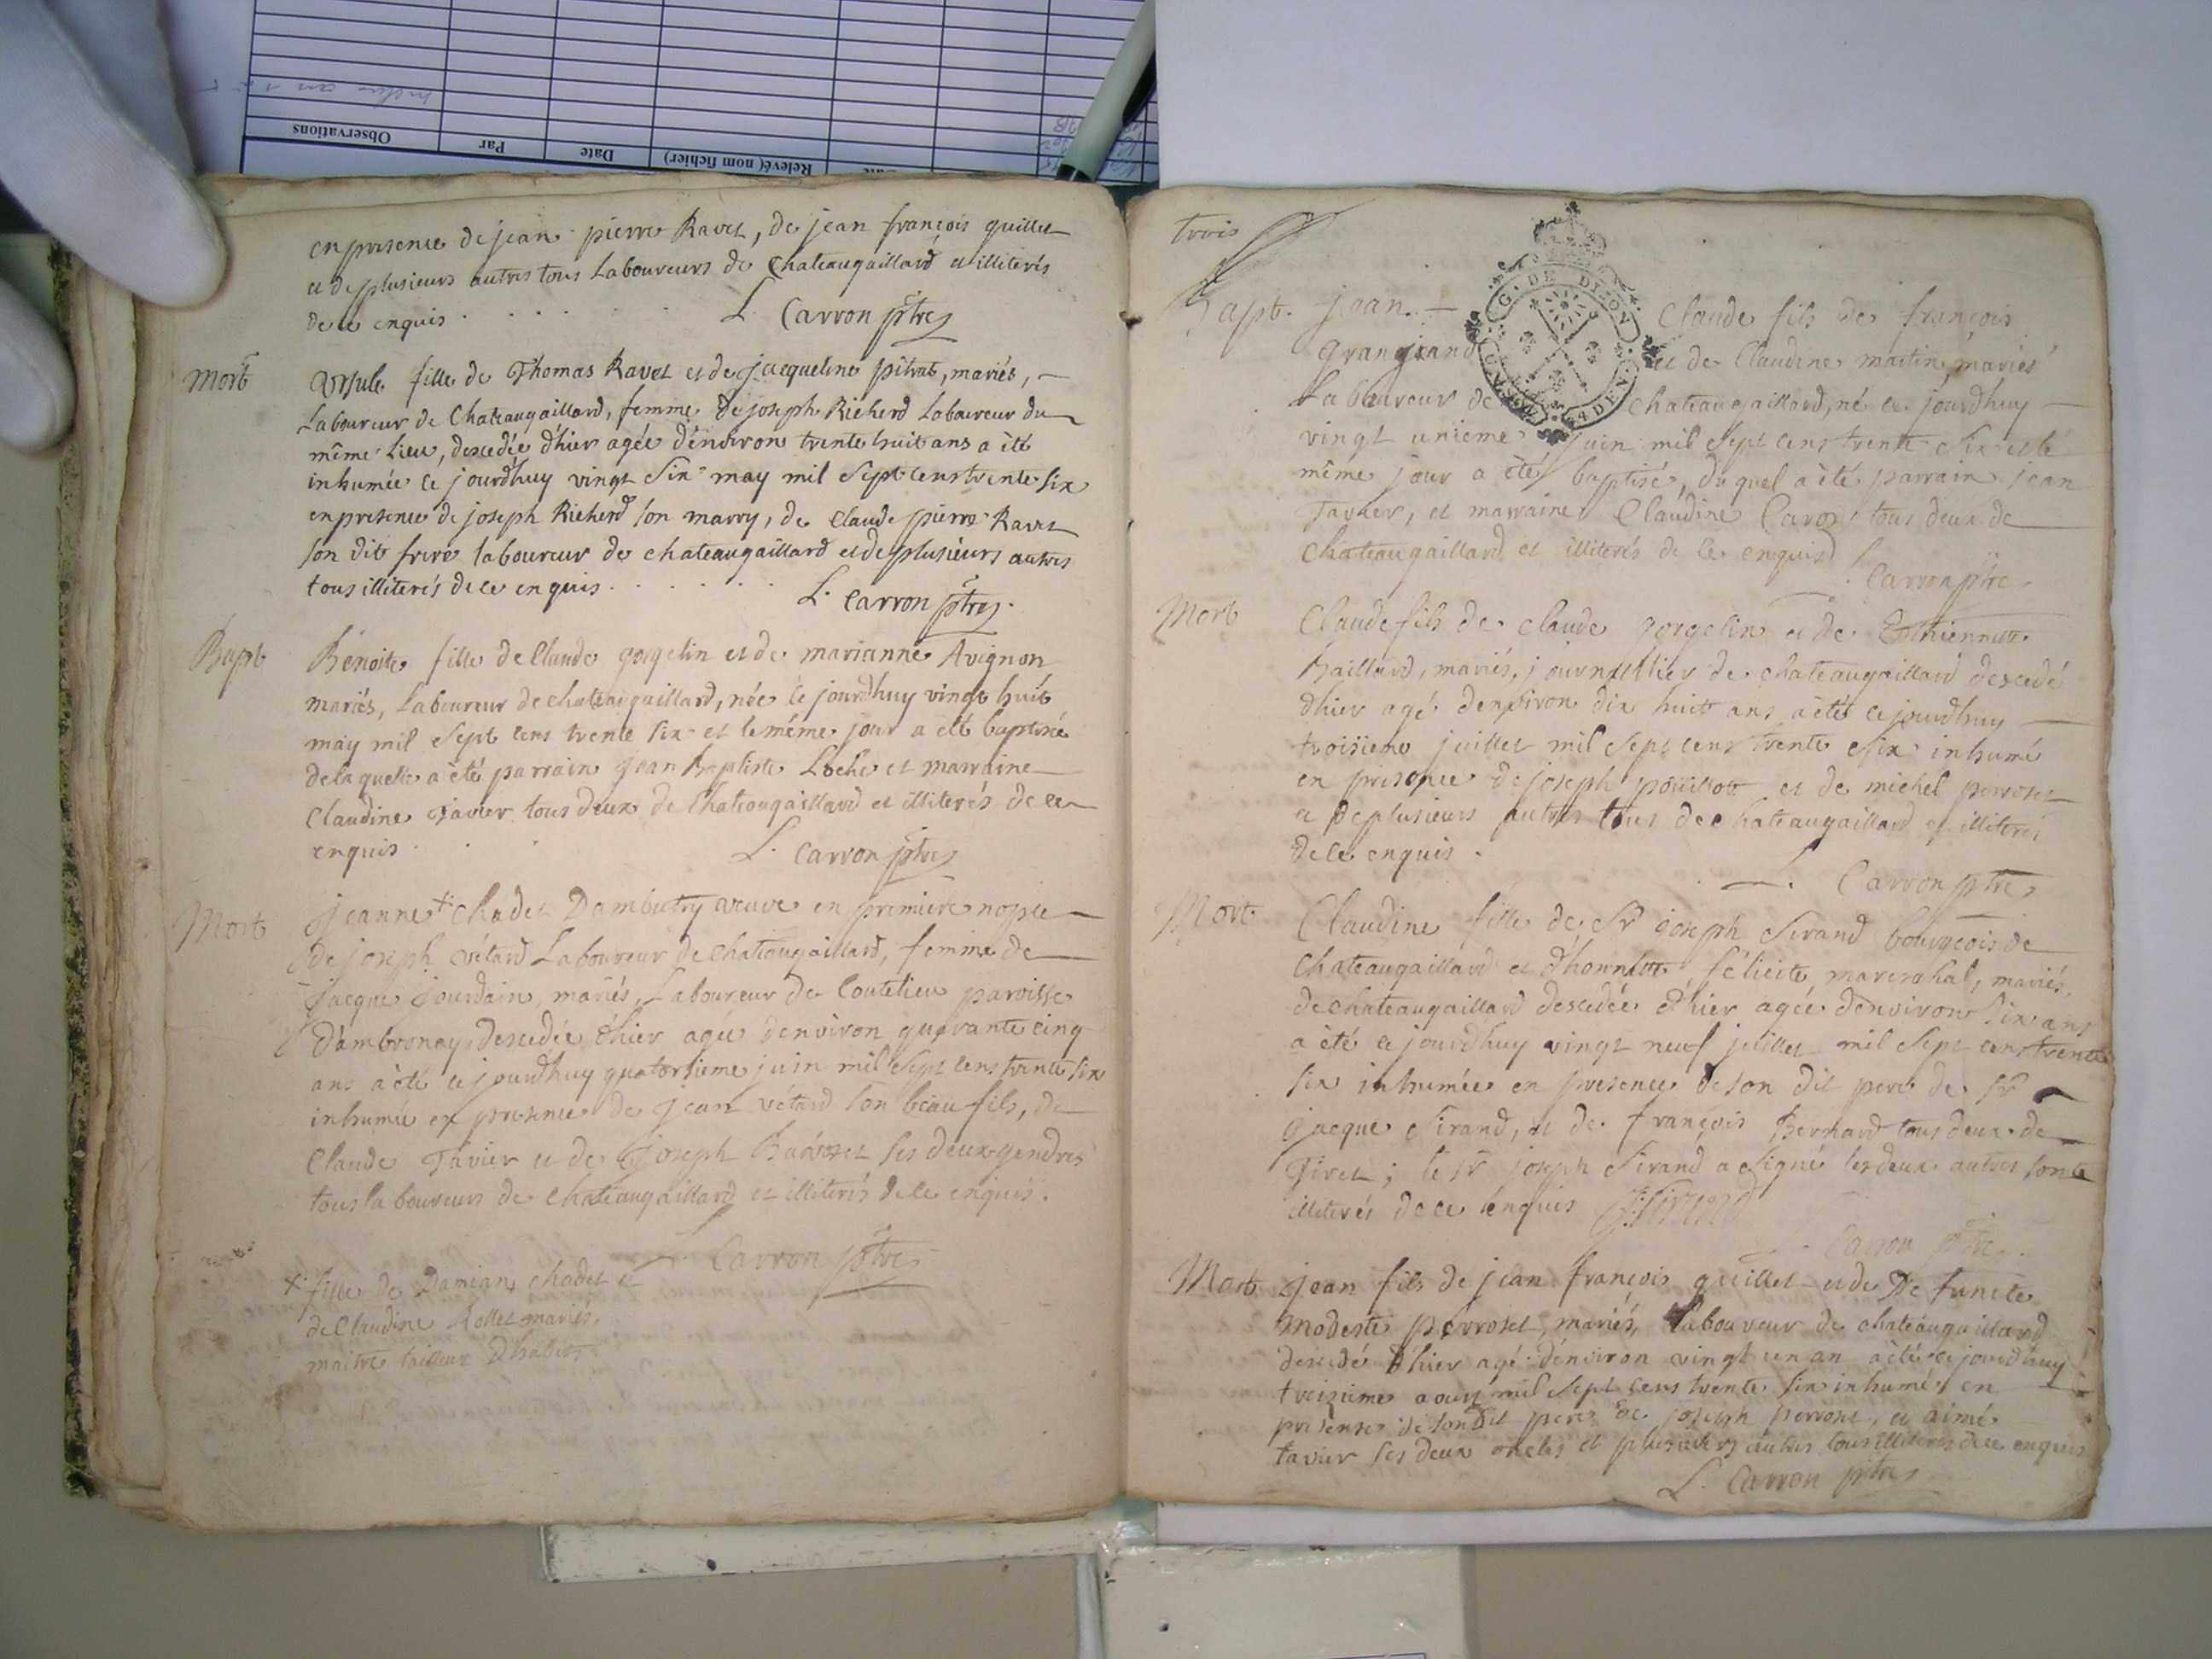 Observations
Par
Date
Relevé( nom fichier)
en presence de jean pierre Ravet, de jean françois quillet
et de plusieurs autres tous Laboureurs de chateaugaillard et illiterés
de ce enquis . . . . . . L. Carron ptre
Mort Ursule fille de Thomas Ravet et de jacqueline pitrat, mariés,
Laboureur de Chateaugaillard, femme de joseph Richerd Laboureur du
même Lieu, descedée d'hier agée d'environ trente huit ans a été
inhumée ce jourdhuy vingt Six may mil Sept cens trente six
en presence de joseph Richerd son marry, de Claude pierre Ravet
son dit frere laboureur de chateaugaillard et de plusieurs autres
tous illiterés de ce enquis . . . . . . L. Carron ptre.
Bapt Benoite fille de Claude gorgelin et de marianne Avignon
mariés, Laboureur de chateaugaillard, née ce jourdhuy vingt huit
may mil Sept cens trente six et le même jour a été baptisée
de la quelle a été parrain jean Baptiste Loche et marraine
Claudine Tavier tous deux de Chateaugaillard et illiterés de ce
enquis . . . L. Carron ptre
Mort jeanne + chadet Dambutry veuve en premiere nopce
de joseph vétard Laboureur de chateaugaillard, femme de
jacque jourdain, mariés, Laboureur de Coutelieu paroisse
d'ambronay, descedée d'hier agée denviron quarante cinq
ans a été ce jourdhuy quatorsieme juin mil Sept cens trente six
inhumée en presence de jean vétard son beau fils, de
Claude Tavier et de joseph ses deux gendres
tous laboureurs de chateaugaillard et illiterés de ce enquis.
L. Carron ptre
+ fille de Damian chadet et
de Claudine Rollet mariés,
maitre tailleur d'habits
trois
G. DE DIJON
Bapt. jean. — Claude fils de françois
grangeand et de Claudine martin, mariés
Laboureur de chateaugaillard, né ce jourdhuy
vingt unieme juin mil Sept cens trente Six et le
même jour a été baptisé, du quel a été parrain jean
Tavier, et marraine Claudine Caron tous deux de
chateaugaillard et illiterés de ce enquis
L. Carron ptre
Mort Claude fils de claude gorgelin et de Ethiennette
Baillard, mariés, journallier de chateaugaillard descedé
dhier agé denviron dix huit ans a été ce jourdhuy
troisieme juillet mil Sept cens trente Six inhumé
en presence de joseph pouillot et de michel perroset
et de plusieurs autres tous de chateaugaillard et illiterés
de ce enquis .
L. Carron ptre
Mort Claudine fille de Sr joseph Sirand bourgeois de
chateaugaillard et d'honnete félicité mareschal, mariés,
de chateaugaillard descedée d'hier agée denviron Six ans
a été ce jourdhuy vingt neuf juillet mil Sept cens trente
six inhumée en presence de son dit pere de Sr
jacque Sirand, et de françois Bernard tous deux de
Tiret ; le Sr joseph Sirand a signé les deux autres sont
illiterés de ce enquis J. Sirand
L. Carron ptre.
Mort jean fils de jean françois quillet et de De functe
modeste perroset, mariés, Laboureur de chateaugaillard
descedé d'hier agé denviron vingt un an a été ce jourdhuy
treisieme aoust mil Sept cens trente six inhumé en
presence de son dit pere de joseph perroset, et aimé
tavier ses deux oncles et plusieurs autres tous illiterés de ce enquis
L. Carron ptre